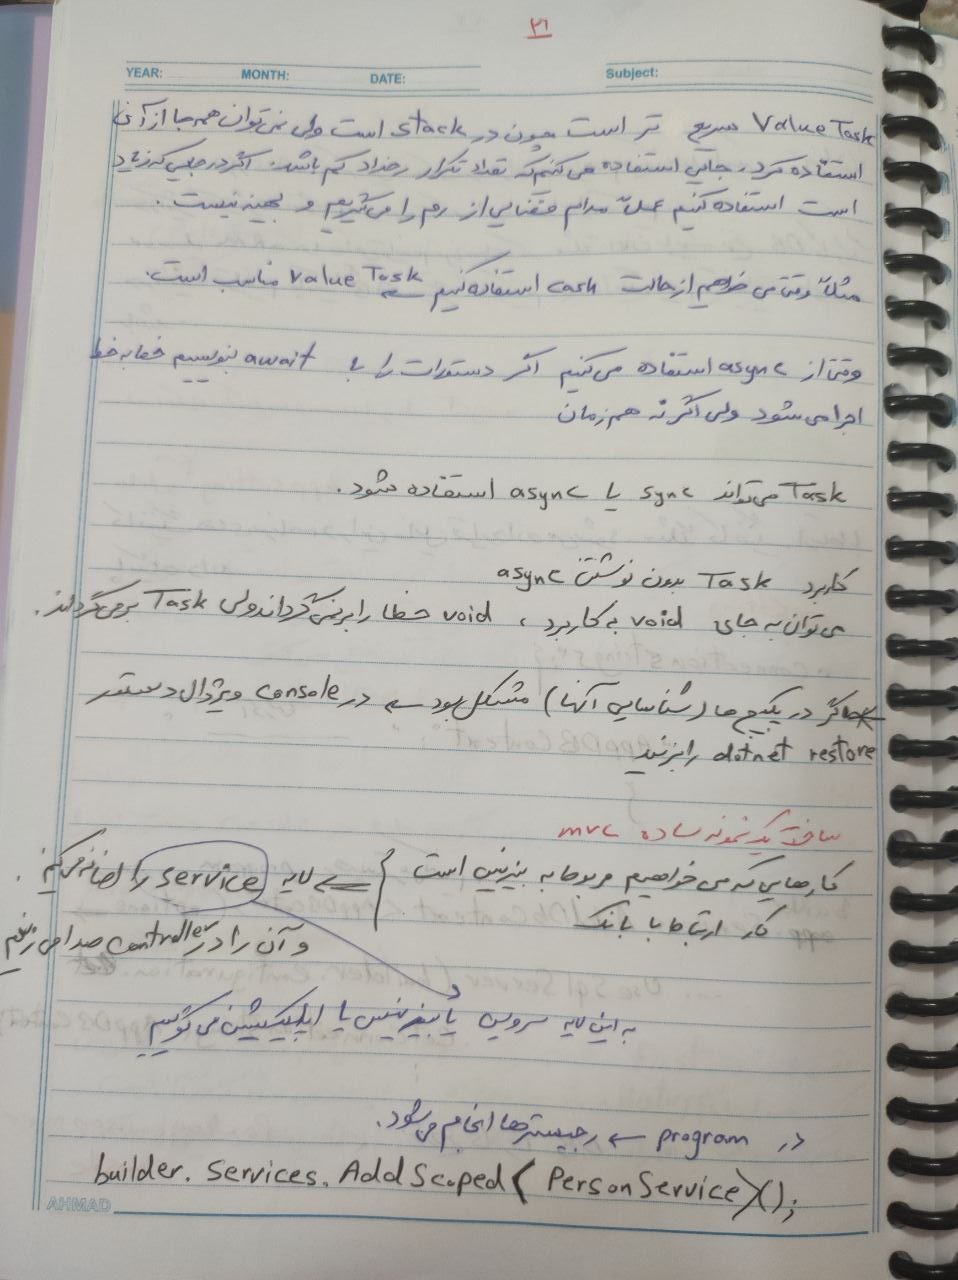 ۳۱
YEAR: MONTH: DATE: Subject:
Value Task سریع تر است چون در stack است ولی نمی‌توان همه جا از آن
استفاده کرد، جایی استفاده می‌کنیم که تعداد تکرار رخداد کم باشد. اگر در جایی که زیاد
است استفاده کنیم عملاً مدام فضایی از رم را می‌گیریم و بهینه نیست.
مثلاً وقتی می خواهیم از حالت cash استفاده کنیم ← Value Task مناسب است.
وقتی از async استفاده می‌کنیم اگر دستورات را با await بنویسیم خط به خط
اجرا می‌شود ولی اگر نه هم زمان
Task می‌تواند sync یا async استفاده شود.
کاربرد Task بدون نوشتن async
می‌توان به جای void به کار برد، void خطا را برنمی‌گرداند ولی Task برمی‌گرداند.
اگر در پکیج ها (شناسایی آنها) مشکل بود ← در console ویژوال دستور
dotnet restore را بزنید
ساخت یک نمونه ساده mvc
کارهایی که می خواهیم مربوط به بیزینس است } ← لایه service را اضافه می‌کنیم.
کار ارتباط با بانک
و آن را در controller صدا می زنیم
به این لایه سرویس یا بیزینس یا اپلیکیشن می گوییم
در program ← رجیسترها انجام می‌شود.
builder. Services. AddScoped < PersonService>();
AHMAD